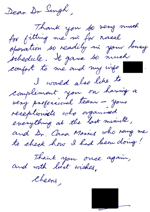 Dear Dr Singh,
Thank you so very much
for fitting me in for nasal
operation so readily in your busy
schedule. It gave so much
comfort to me and my wife
I would also like to
complement you on having a
very professional team – your
receptionists who organised
everything at the last minute,
and Dr. Cara Moxins who rang me
to check how I had been doing!
Thank you once again,
and with best wishes,
Cheers,